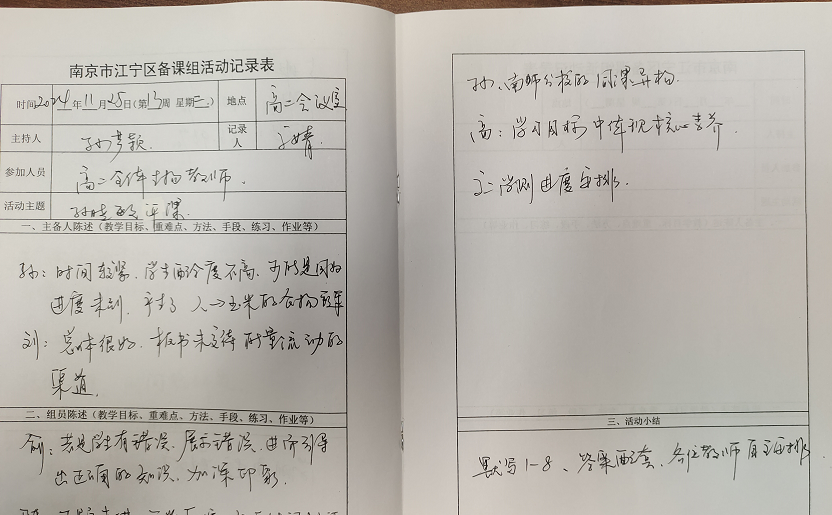 南京市江宁区备课组活动记录表
时间2024年11月25日(第13周 星期二) 地点 高二会议室
主持人 孙 颖 记录人 婧
参加人员 高二全体生物教师.
活动主题 孙 评课.
一、主备人陈述(教学目标、重难点、方法、手段、练习、作业等)
孙:时间较紧、学生配合度不高、可能是因为
进度未到. 人→玉米的食物
刘:总体很好. 板书未交待能量流动的
渠道.
二、组员陈述(教学目标、重难点、方法、手段、练习、作业等)
俞:若是学生有错误、展示错误、进而引导
出正确的知识、加深印象.
孙、南师分校的同课异构.
高:学习目标中体现核心素养.
学测进度安排.
三、活动小结
默写1-8、答案配套、各位教师自主安排